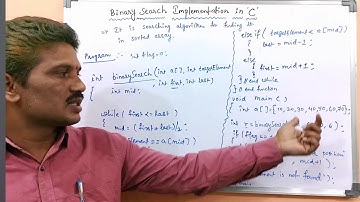 Binary Search Implementation in 'C'
It is searching algorithm to finding
in sorted array.
Program :- int flag=0;
int binarySearch(int a[], int target
int first, int last)
int mid;
while(first <= last)
mid = (first + last)/2;
== a[mid])
else if (targetElement < a[mid])
last = mid-1;
else
first = mid+1;
} // end while
} // end function
void main( )
{ int a[]={10,20,30,40,50,60,70};
int r = binarySearch , 6);
if (flag ==
position"
, mid+1);
element is not found");